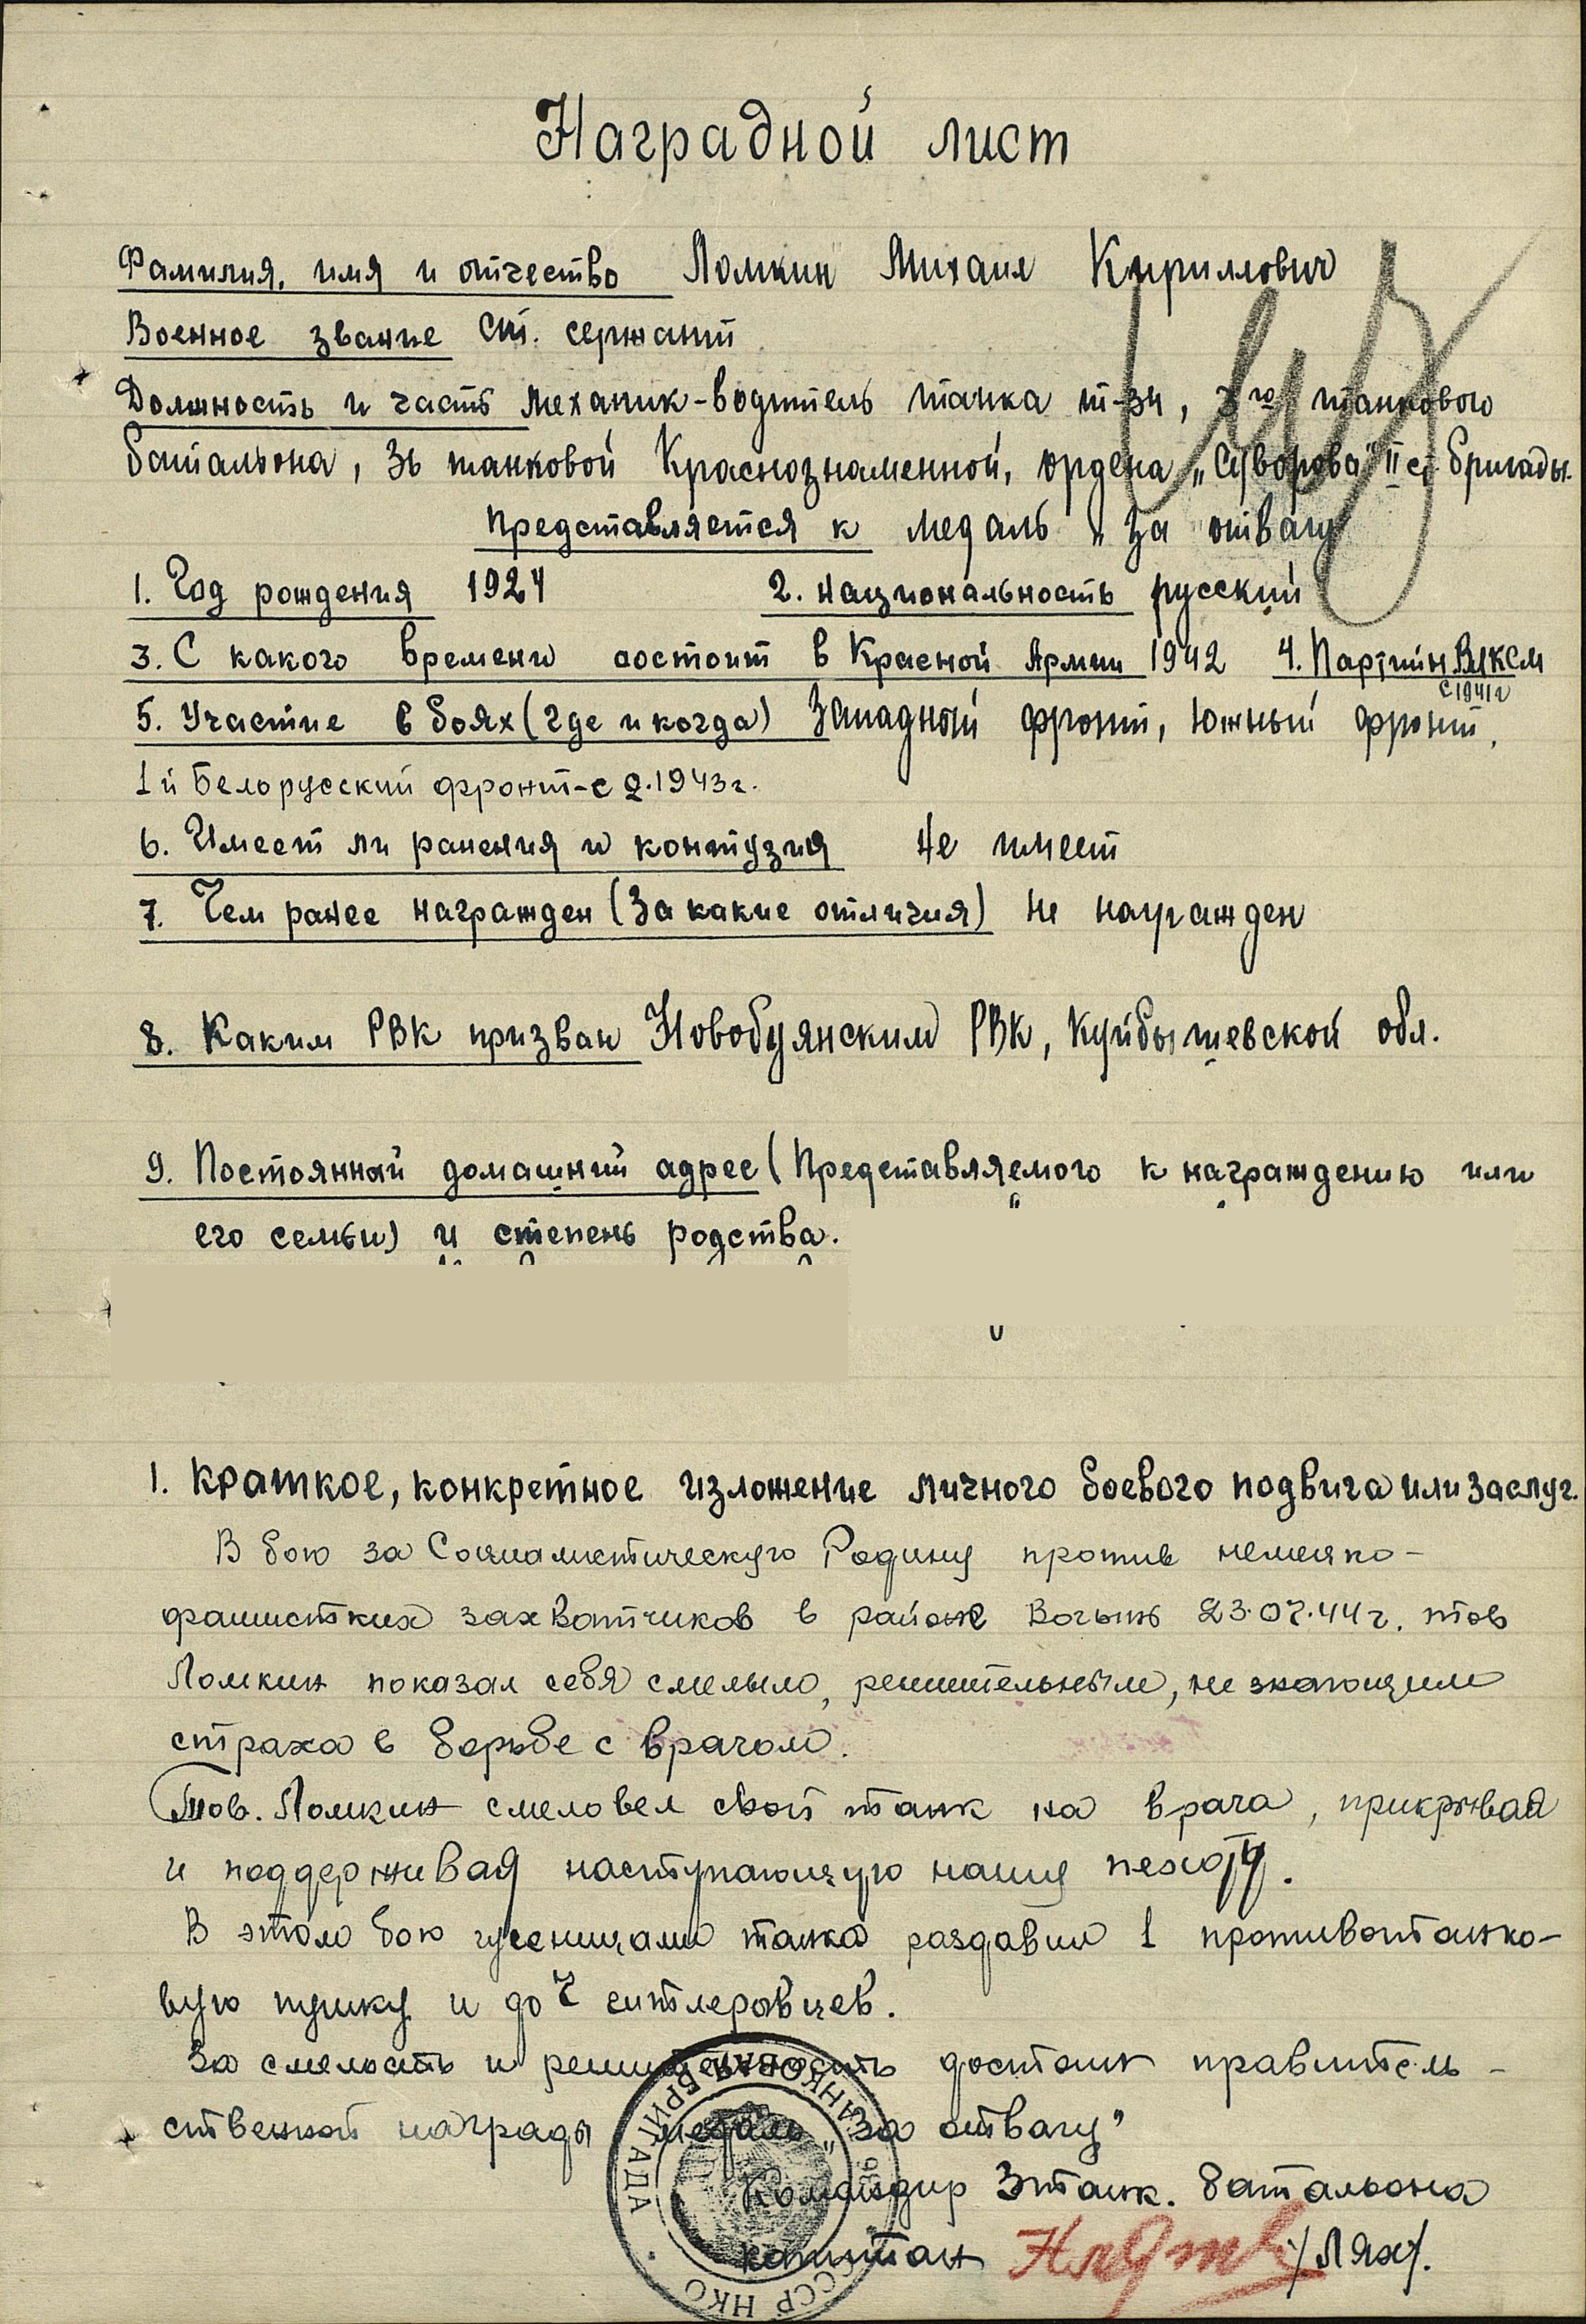 Наградной лист
Фамилия, имя и отчество Ломкин Михаил Кириллович
Военное звание Ст. сержант
Должность и часть механик-водитель танка Т-34, 3го танкового
батальона, 36 танковой Краснознаменной, ордена „Суворова" II ст бригады.
Представляется к медаль „За отвагу
1. Год рождения 1924 2. национальность русский
3. С какого времени состоит в Красной Армии 1942 4. Партийн ВЛКСМ
с 1941 г
5. Участие в боях (где и когда) Западный фронт, Южный фронт,
1й Белорусский фронт-с 2.1943г.
6. Имеет ли ранения и контузия Не имеет
7. Чем ранее награжден (За какие отличия) не награжден
8. Каким РВК призван Новобуянским РВК, Куйбышевской обл.
9. Постоянный домашний адрес (Представляемого к награждению или
его семьи) и степень родства.
1. Краткое, конкретное изложение личного боевого подвига или заслуг.
В бою за Социалистическую Родину против немецко-
фашистких захватчиков в районе Вогынь 23.07.44г. тов
Ломкин показал себя смелым, решительным, не знающим
страха в борьбе с врагом.
Тов. Ломкин смело вел свой танк на врага, прикрывая
и поддерживая наступающую нашу пехоту.
В этом бою гусеницами танка раздавил 1 противотанко-
вую пушку и до 7 гитлеровцев.
За смелость и решительность достоин правитель-
ственной награды медаль „За отвагу"
Командир 3 танк. батальона
капитан /Лях/.
ТАНКОВАЯ БРИГАДА
СССР НКО